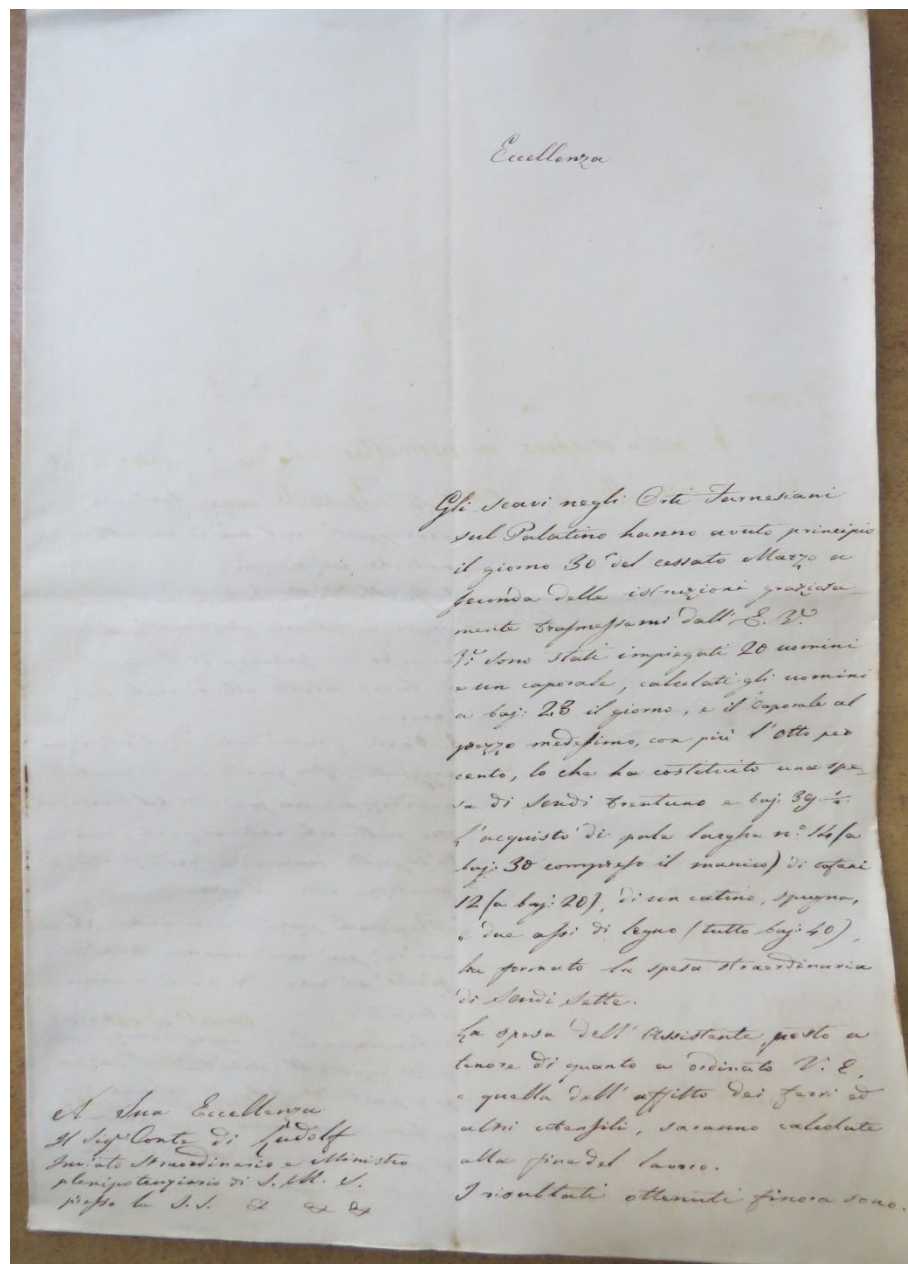 Eccellenza
Gli scavi negli Orti Farnesiani
sul Palatino hanno avuto principio
il giorno 30 del cessato Marzo a
seconda delle istruzioni graziosa-
mente trasmessemi dall' E. V.
Vi sono stati impiegati 20 uomini
e un caporale, calcolati gli uomini
a baj: 28 il giorno, e il Caporale al
prezzo medesimo, con più l'otto per
cento, lo che ha costituito una spe-
sa di Scudi trentuno e baj: 39 ½.
L'acquisto di pale larghe n.º 14 (a
baj: 30 compreso il manico) di cofani
12 (a baj: 20), di un catino, spugna,
e due assi di legno (tutto baj: 40),
ha formato la spesa straordinaria
di Scudi Sette.
La spesa dell' Assistente, posto a
tenore di quanto a ordinato V. E.
e quella dell' affitto dei ferri ed
altri utensili, saranno calcolate
alla fine del lavoro.
I risultati ottenuti finora sono.
A Sua Eccellenza
Il Sigr Conte di Ludolf
Inviato Straordinario e Ministro
plenipotenziario di S. M. S.
presso la S. S. & & &